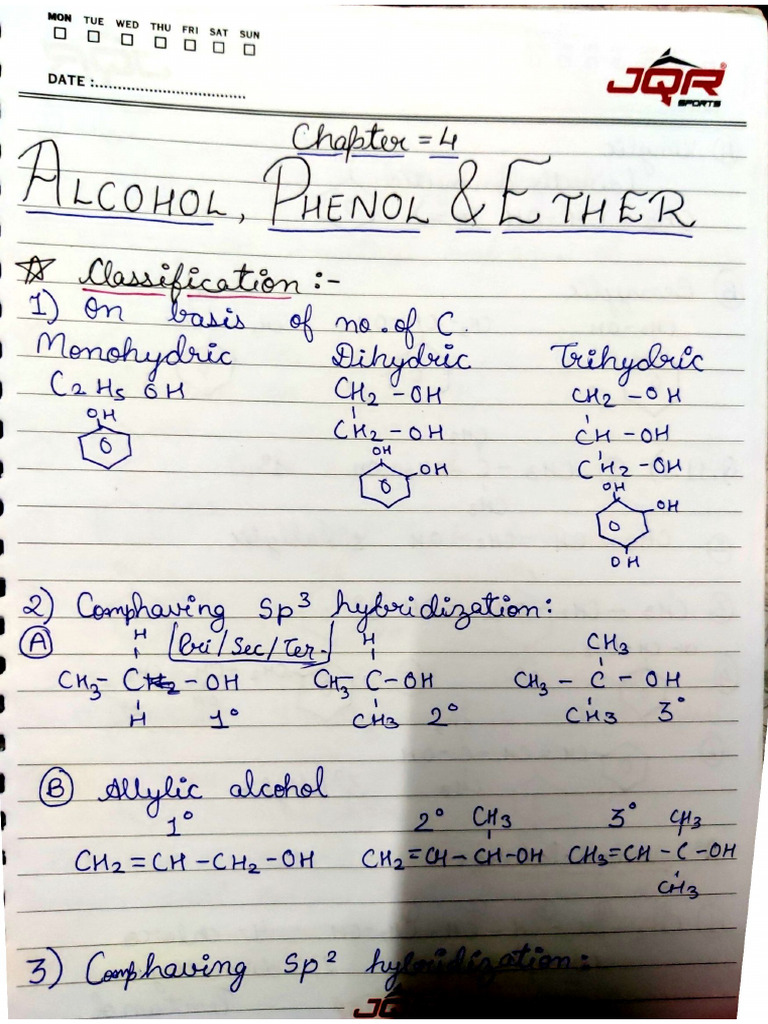 MON TUE WED THU FRI SAT SUN
DATE :
JQR
SPORTS
Chapter = 4
ALCOHOL, PHENOL & ETHER
☆ Classification :-
1) On basis of no. of C.
Monohydric Dihydric Trihydric
C2 H5 OH CH2 - OH CH2 - OH
OH CH2 - OH CH - OH
OH OH CH2 - OH
OH OH
OH
2) Comphaving Sp³ hybridization:
(A) H [Pri/Sec/Ter.] H CH3
CH3 - C - OH CH3 - C - OH CH3 - C - OH
H 1° CH3 2° CH3 3°
(B) Allylic alcohol
1° 2° CH3 3° CH3
CH2 = CH - CH2 - OH CH2 = CH - CH - OH CH3 = CH - C - OH
CH3
3) Comphaving Sp² hybridization: